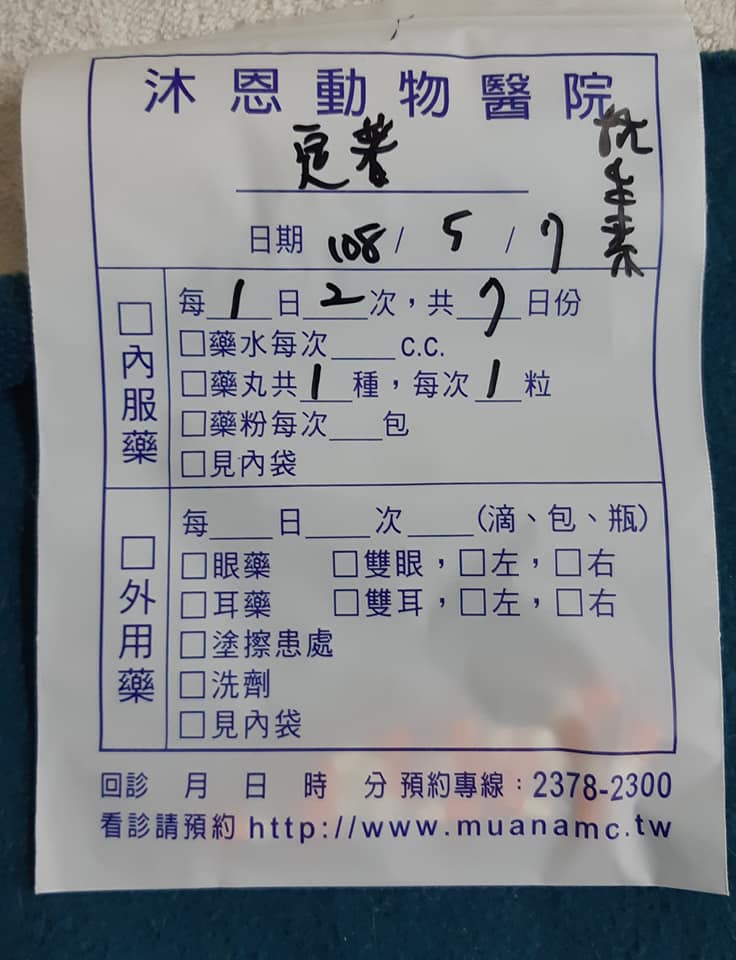 沐恩動物醫院
抗生素
日期 108 / 5 / 7
□內服藥
每 1 日 2 次，共 7 日份
□藥水每次____c.c.
□藥丸共 1 種，每次 1 粒
□藥粉每次___包
□見內袋
□外用藥
每____日____次____(滴、包、瓶)
□眼藥 □雙眼，□左，□右
□耳藥 □雙耳，□左，□右
□塗擦患處
□洗劑
□見內袋
回診 月 日 時 分 預約專線：2378-2300
看診請預約 http://www.muanamc.tw